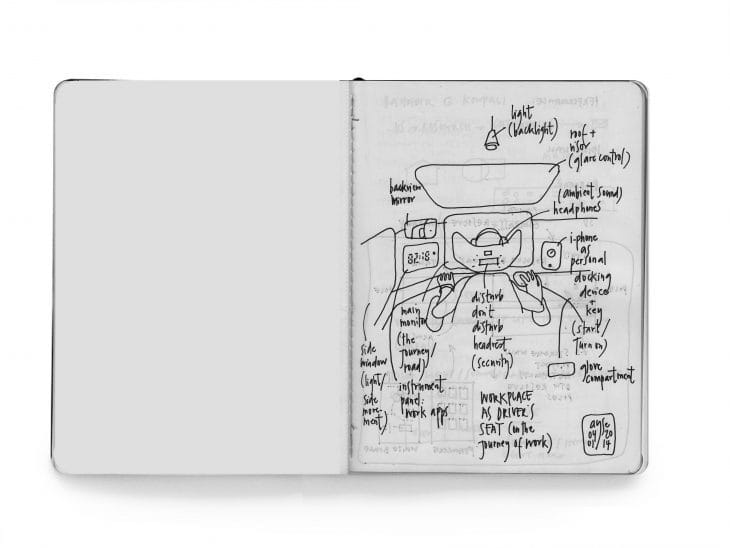 light
(backlight)
roof +
visor
(glare control)
backview
mirror
(ambient sound)
headphones
i-phone
as
personal
docking
device
+
key
(start/
turn on)
82:18
main
monitor
(the
journey/
road)
disturb
don't
disturb
headrest
(security)
side
window
(light/
side
move-
ment)
instrument
panel:
work apps
glove
compartment
WORKPLACE
AS DRIVER'S
SEAT (in the
journey of work)
04 20
01 14